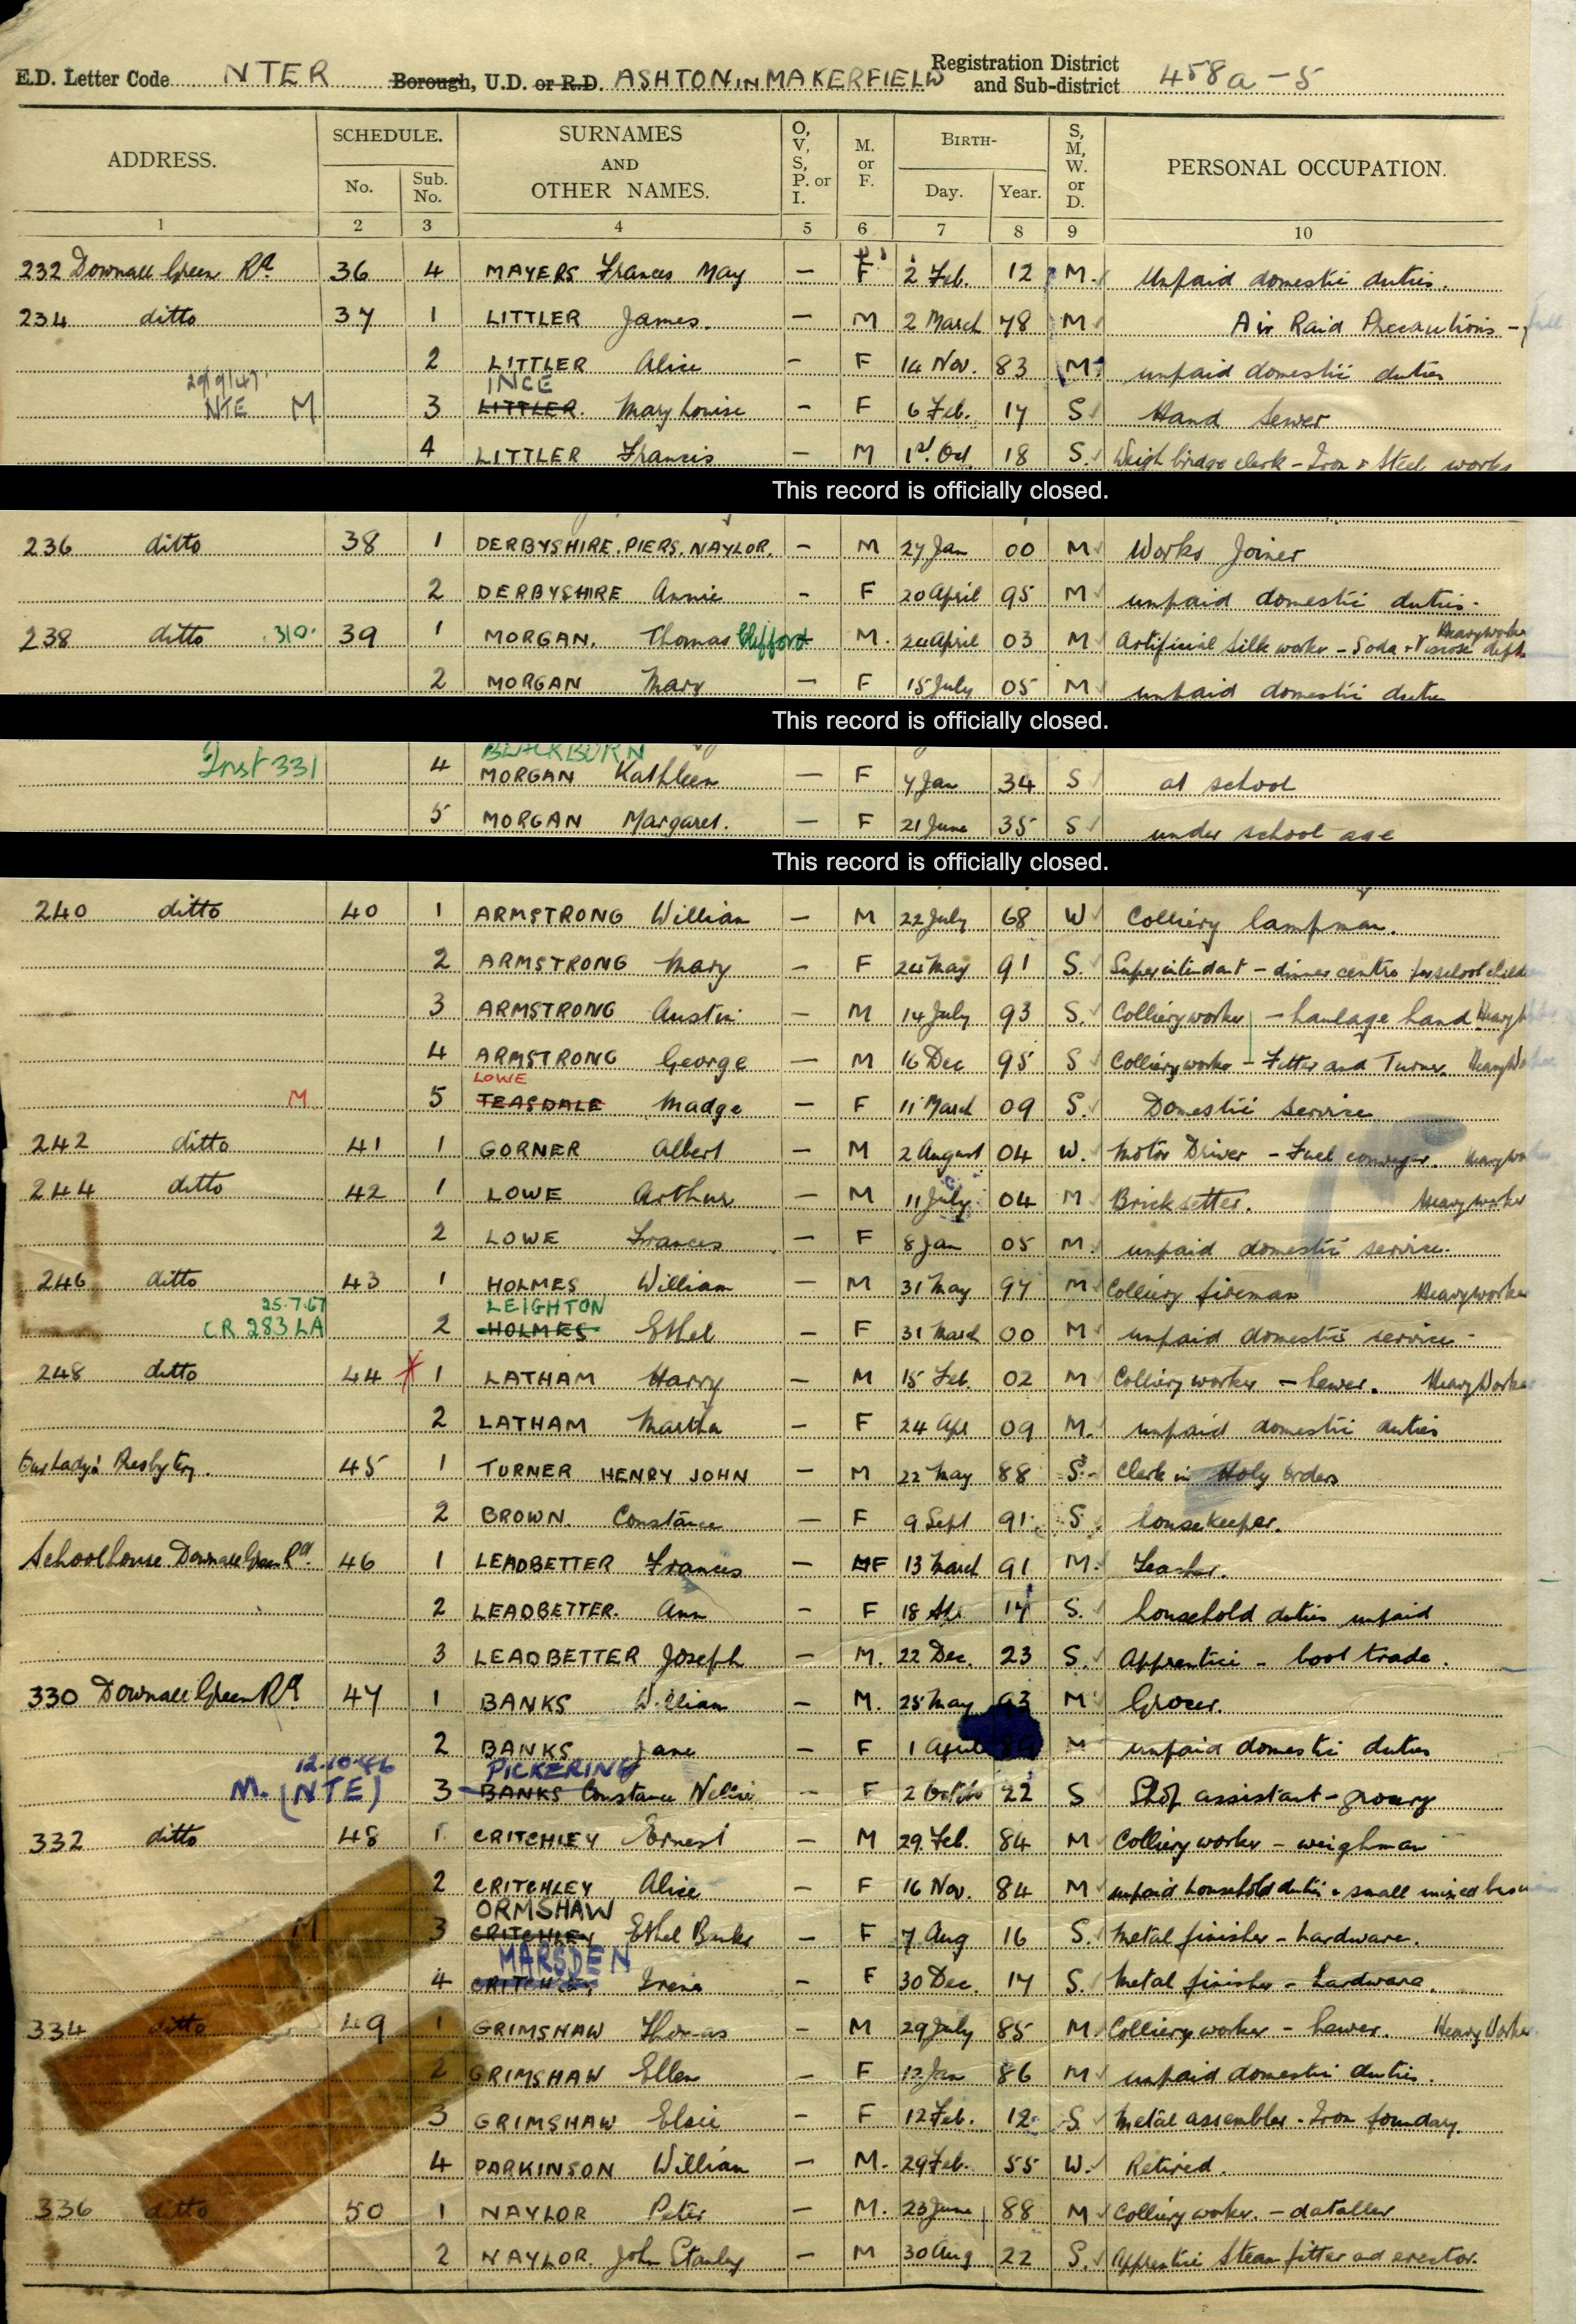 E.D. Letter Code NTER Borough, U.D. or R.D. ASHTON IN MAKERFIELD Registration District and Sub-district 458a-5
ADDRESS. SCHEDULE. No. Sub. No. SURNAMES AND OTHER NAMES. O, V, S, P. or I. M. or F. BIRTH- Day. Year. S, M, W. or D. PERSONAL OCCUPATION.
1 2 3 4 5 6 7 8 9 10
232 Downall Green Rd. 36 4 MAYERS Frances May — F 2 Feb. 12 M. Unpaid domestic duties.
234 ditto 37 1 LITTLER James. — M 2 March 78 M Air Raid Precautions - full
2 LITTLER Alice - F 14 Nov. 83 M unpaid domestic duties
29/9/41 INCE
NTE M 3 LITTLER. Mary Louise - F 6 Feb. 17 S Hand Sewer
4 LITTLER Francis — M 1st. Oct 18 S. Weigh bridge clerk - Iron & Steel works
This record is officially closed.
236 ditto 38 1 DERBYSHIRE. PIERS. NAYLOR. - M 27 Jan 00 M Works Joiner
2 DERBYSHIRE Annie - F 20 April 95 M unpaid domestic duties.
238 ditto 310. 39 1 MORGAN. Thomas Clifford - M. 24 April 03 M Artificial Silk worker - Soda & Viscose dept. Heavy worker
2 MORGAN Mary — F 15 July 05 M unpaid domestic duties
This record is officially closed.
BLACKBURN
Inst 331 4 MORGAN Kathleen — F 7 Jan 34 S at school
5 MORGAN Margaret. — F 21 June 35 S under school age
This record is officially closed.
240 ditto 40 1 ARMSTRONG William — M 22 July 68 W Colliery lampman.
2 ARMSTRONG Mary — F 24 May 91 S. Superintendant - dinner centre for school child
3 ARMSTRONG Austin — M 14 July 93 S. Colliery worker - haulage hand Heavy
4 ARMSTRONG George — M 16 Dec 95 S Colliery worker - Fitter and Turner Heavy Wo
LOWE
M 5 TEASDALE Madge — F 11 March 09 S. Domestic service
242 ditto 41 1 GORNER Albert — M 2 August 04 W. Motor Driver - Fuel conveyer. Heavy wo
244 ditto 42 1 LOWE Arthur — M 11 July 04 M Brick setter. Heavy worker
2 LOWE Frances — F 8 Jan 05 M. unpaid domestic service.
246 ditto 43 1 HOLMES William — M 31 May 97 M Colliery fireman Heavy worker
25.7.67 LEIGHTON
CR 283 LA 2 HOLMES Ethel — F 31 March 00 M unpaid domestic service -
248 ditto 44 1 LATHAM Harry — M 15 Feb. 02 M Colliery worker - hewer. Heavy Worker
2 LATHAM Martha — F 24 Apl 09 M. unpaid domestic duties
Our Lady's Presbytery. 45 1 TURNER HENRY JOHN — M 22 May 88 S. Clerk in Holy Orders
2 BROWN. Constance — F 9 Sept 91 S housekeeper.
Schoolhouse Downall Green Rd. 46 1 LEADBETTER Francis — MF 13 March 91 M. Teacher.
2 LEADBETTER. Ann — F 18 17 S. household duties unpaid
3 LEADBETTER Joseph — M. 22 Dec. 23 S. Apprentice - boot trade.
330 Downall Green Rd 47 1 BANKS William — M. 25 May 93 M Grocer.
2 BANKS Jane — F 1 April 89 M unpaid domestic duties
12.10.46 PICKERING
M. (NTE) 3 BANKS Constance Nellie — F 2 October 22 S Shop assistant - grocery
332 ditto 48 1 CRITCHLEY Ernest — M 29. Feb. 84 M Colliery worker - weighman
2 CRITCHLEY Alice — F 16 Nov. 84 M unpaid household duties & small mixed
ORMSHAW
M 3 CRITCHLEY Ethel — F 7 Aug 16 S. Metal finisher - hardware.
MARSDEN
4 CRITCHLEY Irene — F 30 Dec. 17 S. Metal finisher - hardware.
334 ditto 49 1 GRIMSHAW Thomas — M 29 July 85 M. Colliery worker - hewer. Heavy Worker
2 GRIMSHAW Ellen — F 12 Jan 86 M unpaid domestic duties.
3 GRIMSHAW Elsie — F 12 Feb. 12 S Metal assembler - Iron foundary.
4 PARKINSON William — M. 29 Feb. 55 W. Retired.
336 ditto 50 1 NAYLOR Peter — M. 23 June 88 M Colliery worker. - dataller
2 NAYLOR. John Stanley — M 30 Aug 22 S. Apprentice Steam fitter and erector.